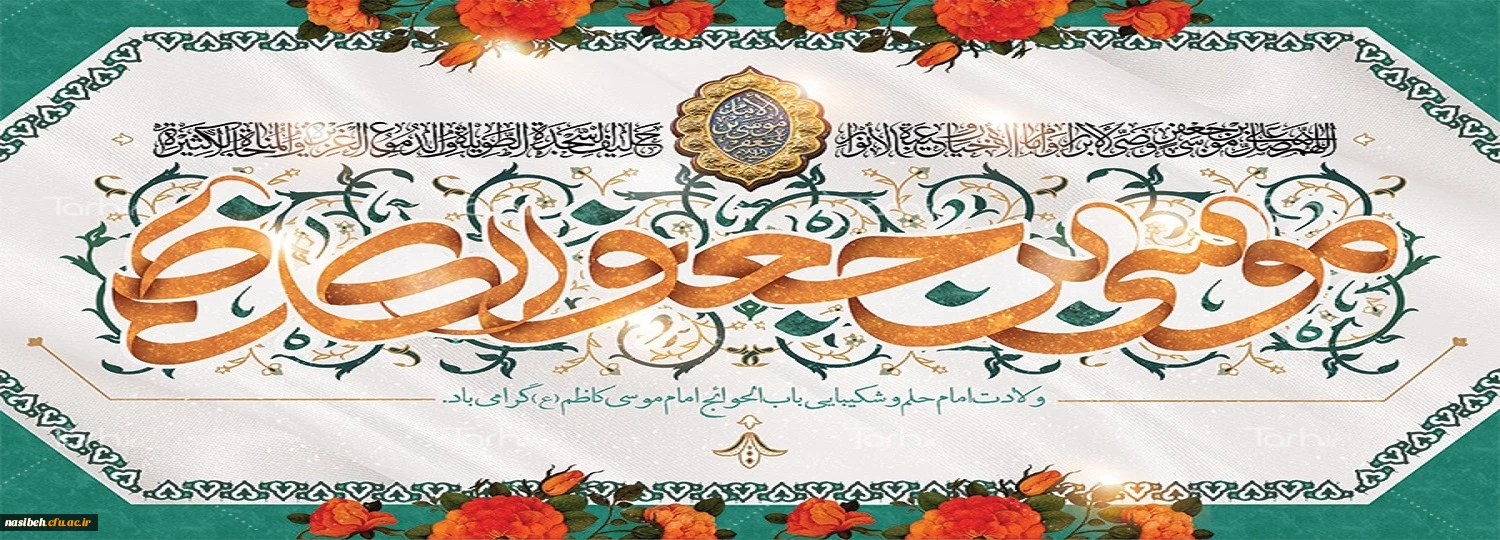 اللهم صل علی موسی بن جعفر وصی الأبرار و إمام الأخیار و عیبة الأنوار
الامام
موسی بن
جعفر
حلیف السجدة الطویلة والدموع الغزیرة والمناجات الکثیرة
موسی بن جعفر الکاظم
ولادت امام حلم و شکیبایی باب الحوائج امام موسی کاظم (ع) گرامی باد.
nasibeh.cfu.ac.ir